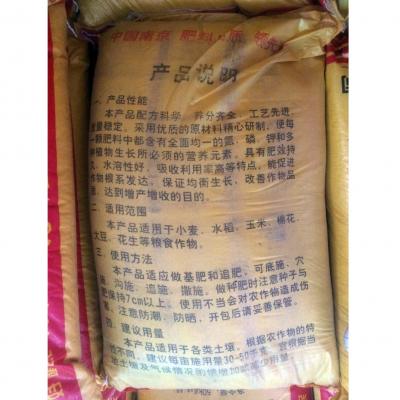 中国南京 肥料
产品说明
一、产品性能
本产品配方科学，养分齐全，工艺先进，
质量稳定。采用优质的原材料精心研制，使每
一颗肥料中都含有全面均一的氮、磷、钾和多
种植物生长所必须的营养元素，具有肥效持
久、水溶性好，吸收利用率高等特点，能促进
作物根系发达，保证均衡生长，改善作物品
质，达到增产增收的目的。
二、适用范围
本产品适用于小麦、水稻、玉米、棉花、
大豆、花生等粮食作物。
三、使用方法
本产品适应做基肥和追肥，可底施、穴
施、沟施、追施、撒施。做种肥时注意种子与
肥保持7cm以上。使用不当会对农作物造成伤
害，注意防潮、防晒，开包后请妥善保管。
四、建议用量
本产品适用于各类土壤，根据农作物的特
性不同，建议每亩施用量30-50千克，
土壤及气候情况酌情增加或减少用量。